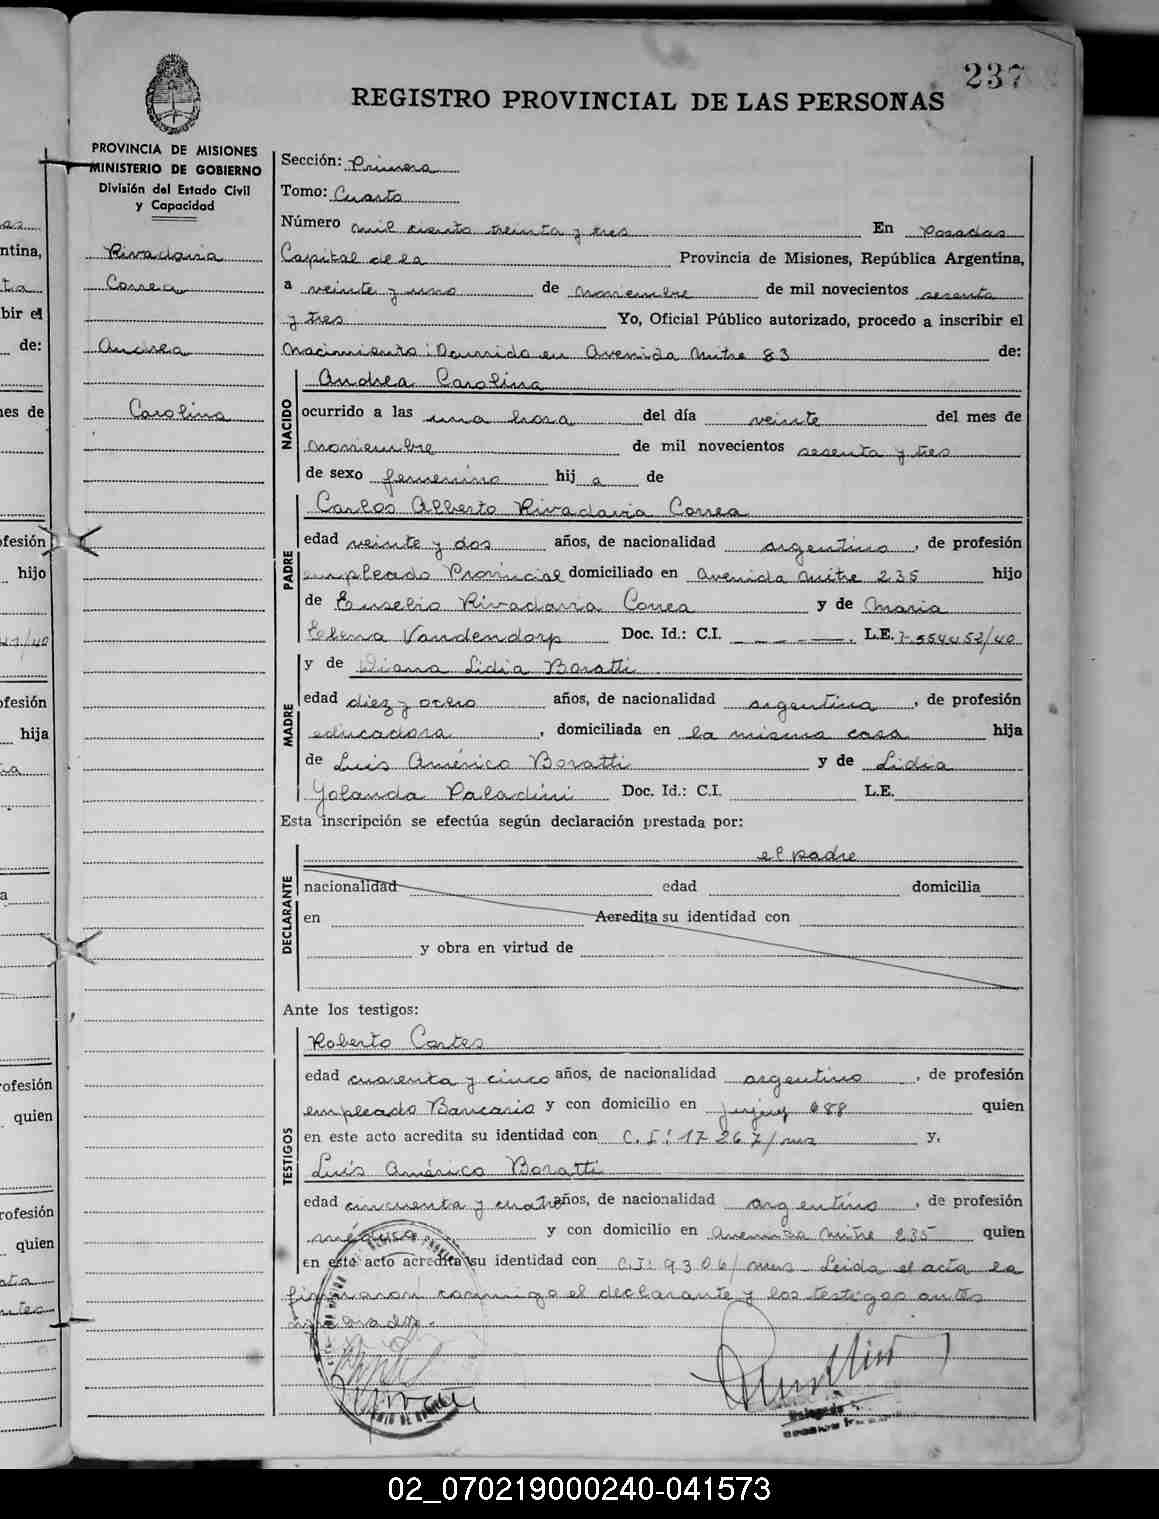 237
REGISTRO PROVINCIAL DE LAS PERSONAS
PROVINCIA DE MISIONES
MINISTERIO DE GOBIERNO
División del Estado Civil
y Capacidad
Rivadavia
Correa
Andrea
Carolina
Sección: Primera
Tomo: Cuarto
Número mil ciento treinta y tres En Posadas
Capital de la Provincia de Misiones, República Argentina,
a veinte y uno de noviembre de mil novecientos sesenta
y tres Yo, Oficial Público autorizado, procedo a inscribir el
nacimiento: Ocurrido en Avenida Mitre 83 de:
NACIDO
Andrea Carolina
ocurrido a las una hora del día veinte del mes de
noviembre de mil novecientos sesenta y tres
de sexo femenino hij a de
PADRE
Carlos Alberto Rivadavia Correa
edad veinte y dos años, de nacionalidad argentino, de profesión
empleado Provincial domiciliado en Avenida Mitre 235 hijo
de Eusebio Rivadavia Correa y de Maria
Elena Vandendorp Doc. Id.: C.I. L.E. 7.554452/40
MADRE
y de Diana Lidia Boratti
edad diez y ocho años, de nacionalidad argentina, de profesión
educadora, domiciliada en la misma casa hija
de Luis Américo Boratti y de Lidia
Yolanda Paladini Doc. Id.: C.I. L.E.
Esta inscripción se efectúa según declaración prestada por:
DECLARANTE
el padre
nacionalidad edad domicilia
en Acredita su identidad con
y obra en virtud de
Ante los testigos:
TESTIGOS
Roberto Cortes
edad cuarenta y cinco años, de nacionalidad argentino, de profesión
empleado Bancario y con domicilio en Jujuy quien
en este acto acredita su identidad con C.I: 17267/ms y,
Luis Américo Boratti
edad cincuenta y cuatro años, de nacionalidad argentino, de profesión
médico y con domicilio en Avenida Mitre 235 quien
en este acto acredita su identidad con C.I: 9306/mns Leida el acta la
firmaron conmigo el declarante y los testigos antes
02_070219000240-041573